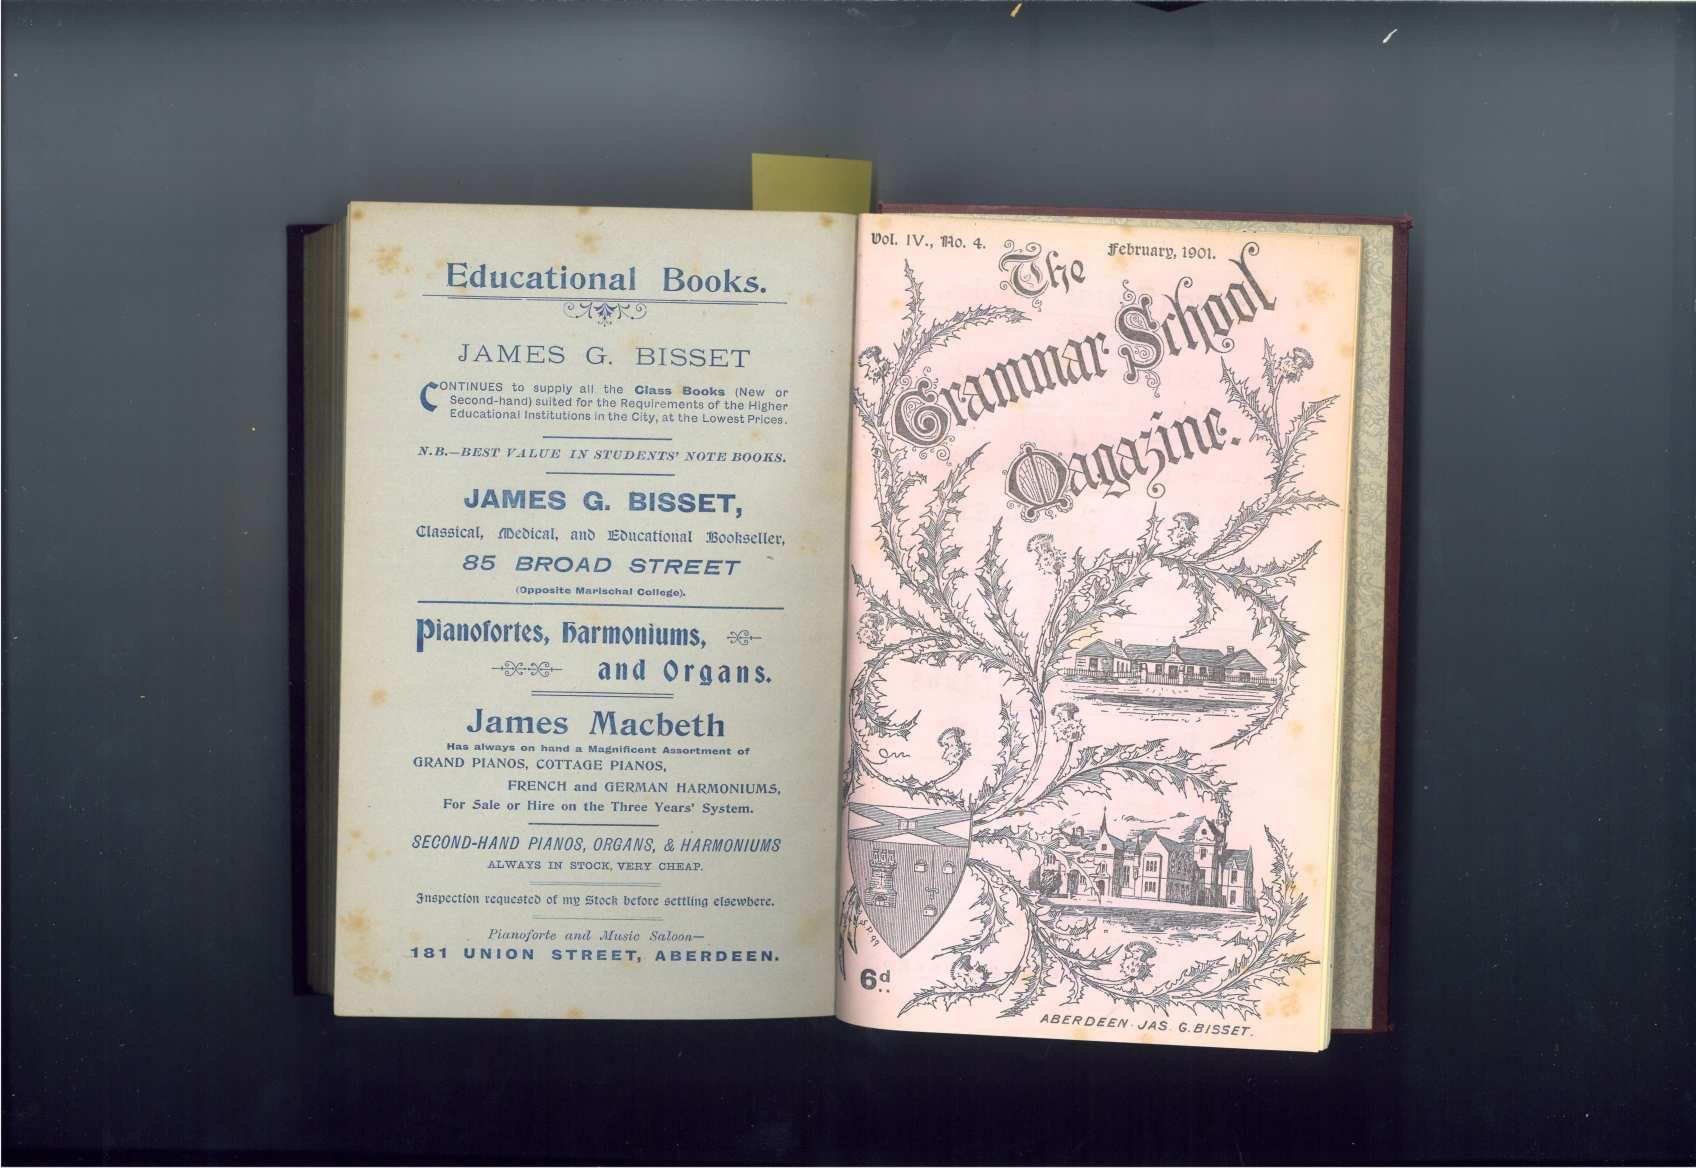 Educational Books.
JAMES G. BISSET
CONTINUES to supply all the Class Books (New or
Second-hand) suited for the Requirements of the Higher
Educational Institutions in the City, at the Lowest Prices.
N.B.—BEST VALUE IN STUDENTS' NOTE BOOKS.
JAMES G. BISSET,
Classical, Medical, and Educational Bookseller,
85 BROAD STREET
(Opposite Marischal College).
Pianofortes, Harmoniums,
and Organs.
James Macbeth
Has always on hand a Magnificent Assortment of
GRAND PIANOS, COTTAGE PIANOS,
FRENCH and GERMAN HARMONIUMS,
For Sale or Hire on the Three Years' System.
SECOND-HAND PIANOS, ORGANS, & HARMONIUMS
ALWAYS IN STOCK, VERY CHEAP.
Inspection requested of my Stock before settling elsewhere.
Pianoforte and Music Saloon—
181 UNION STREET, ABERDEEN.
Vol. IV., No. 4.
February, 1901.
The
Grammar School
Magazine.
6d
ABERDEEN. JAS. G. BISSET.